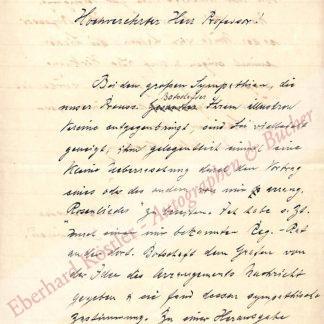 Hochverehrter Herr Professor!
Bei den großen Sympathien, die
unser Preuss. Botschafter Ihrem illustren
Vereine entgegenbringt, sind Sie vielleicht
geneigt, ihm gelegentlich einmal eine
kleine Ueberraschung durch den Vortrag
eines oder des andern von mir
"Rosenlieder" zu bereiten. Ich habe s. Zt.
durch einen mir bekannten Reg.-Rat
an der dort. Botschaft dem Grafen von
der Idee des Arrangements Nachricht
gegeben & sie fand dessen sympathische
Zustimmung. Zu einer Herausgabe
Eberhard Köstler Autographen & Bücher